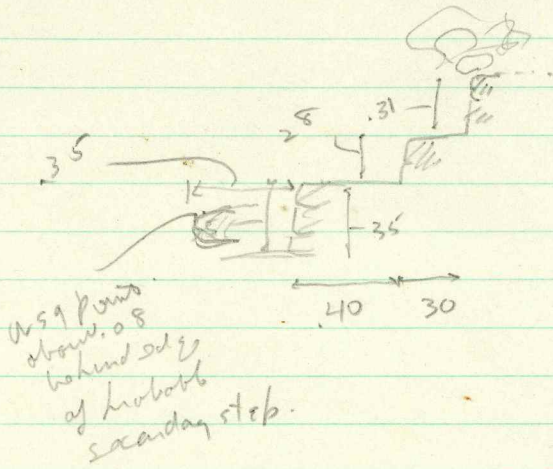 .31
28
.35
.35
.40 30
points
about .08
behind edge
of probable
secondary step.